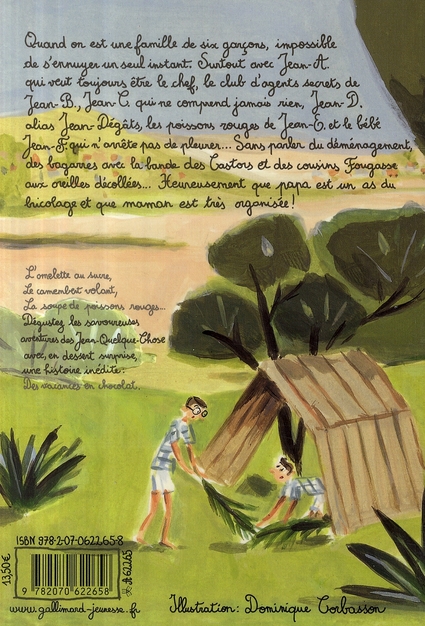 Quand on est une famille de six garçons, impossible
de s'ennuyer un seul instant. Surtout avec Jean-A.
qui veut toujours être le chef, le club d'agents secrets de
Jean-B., Jean-C. qui ne comprend jamais rien, Jean-D.
alias Jean-Dégâts, les poissons rouges de Jean-E. et le bébé
Jean-F. qui n'arrête pas de pleurer... Sans parler du déménagement,
des bagarres avec la bande des Castors et des cousins Fougasse
aux oreilles décollées... Heureusement que papa est un as du
bricolage et que maman est très organisée !
L'omelette au sucre,
Le camembert volant,
La soupe de poissons rouges...
Dégustez les savoureuses
aventures des Jean-Quelque-Chose
avec, en dessert surprise,
une histoire inédite :
Des vacances en chocolat.
ISBN 978-2-07-062265-8
13,50 €
A 62265
9 782070 622658
www.gallimard-jeunesse.fr
Illustration : Dominique Corbasson